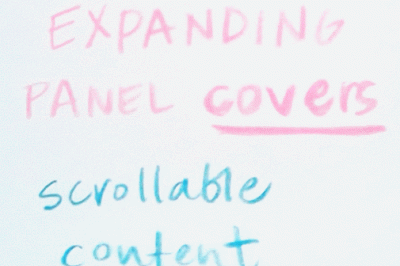 EXPANDING
PANEL covers
scrollable
content